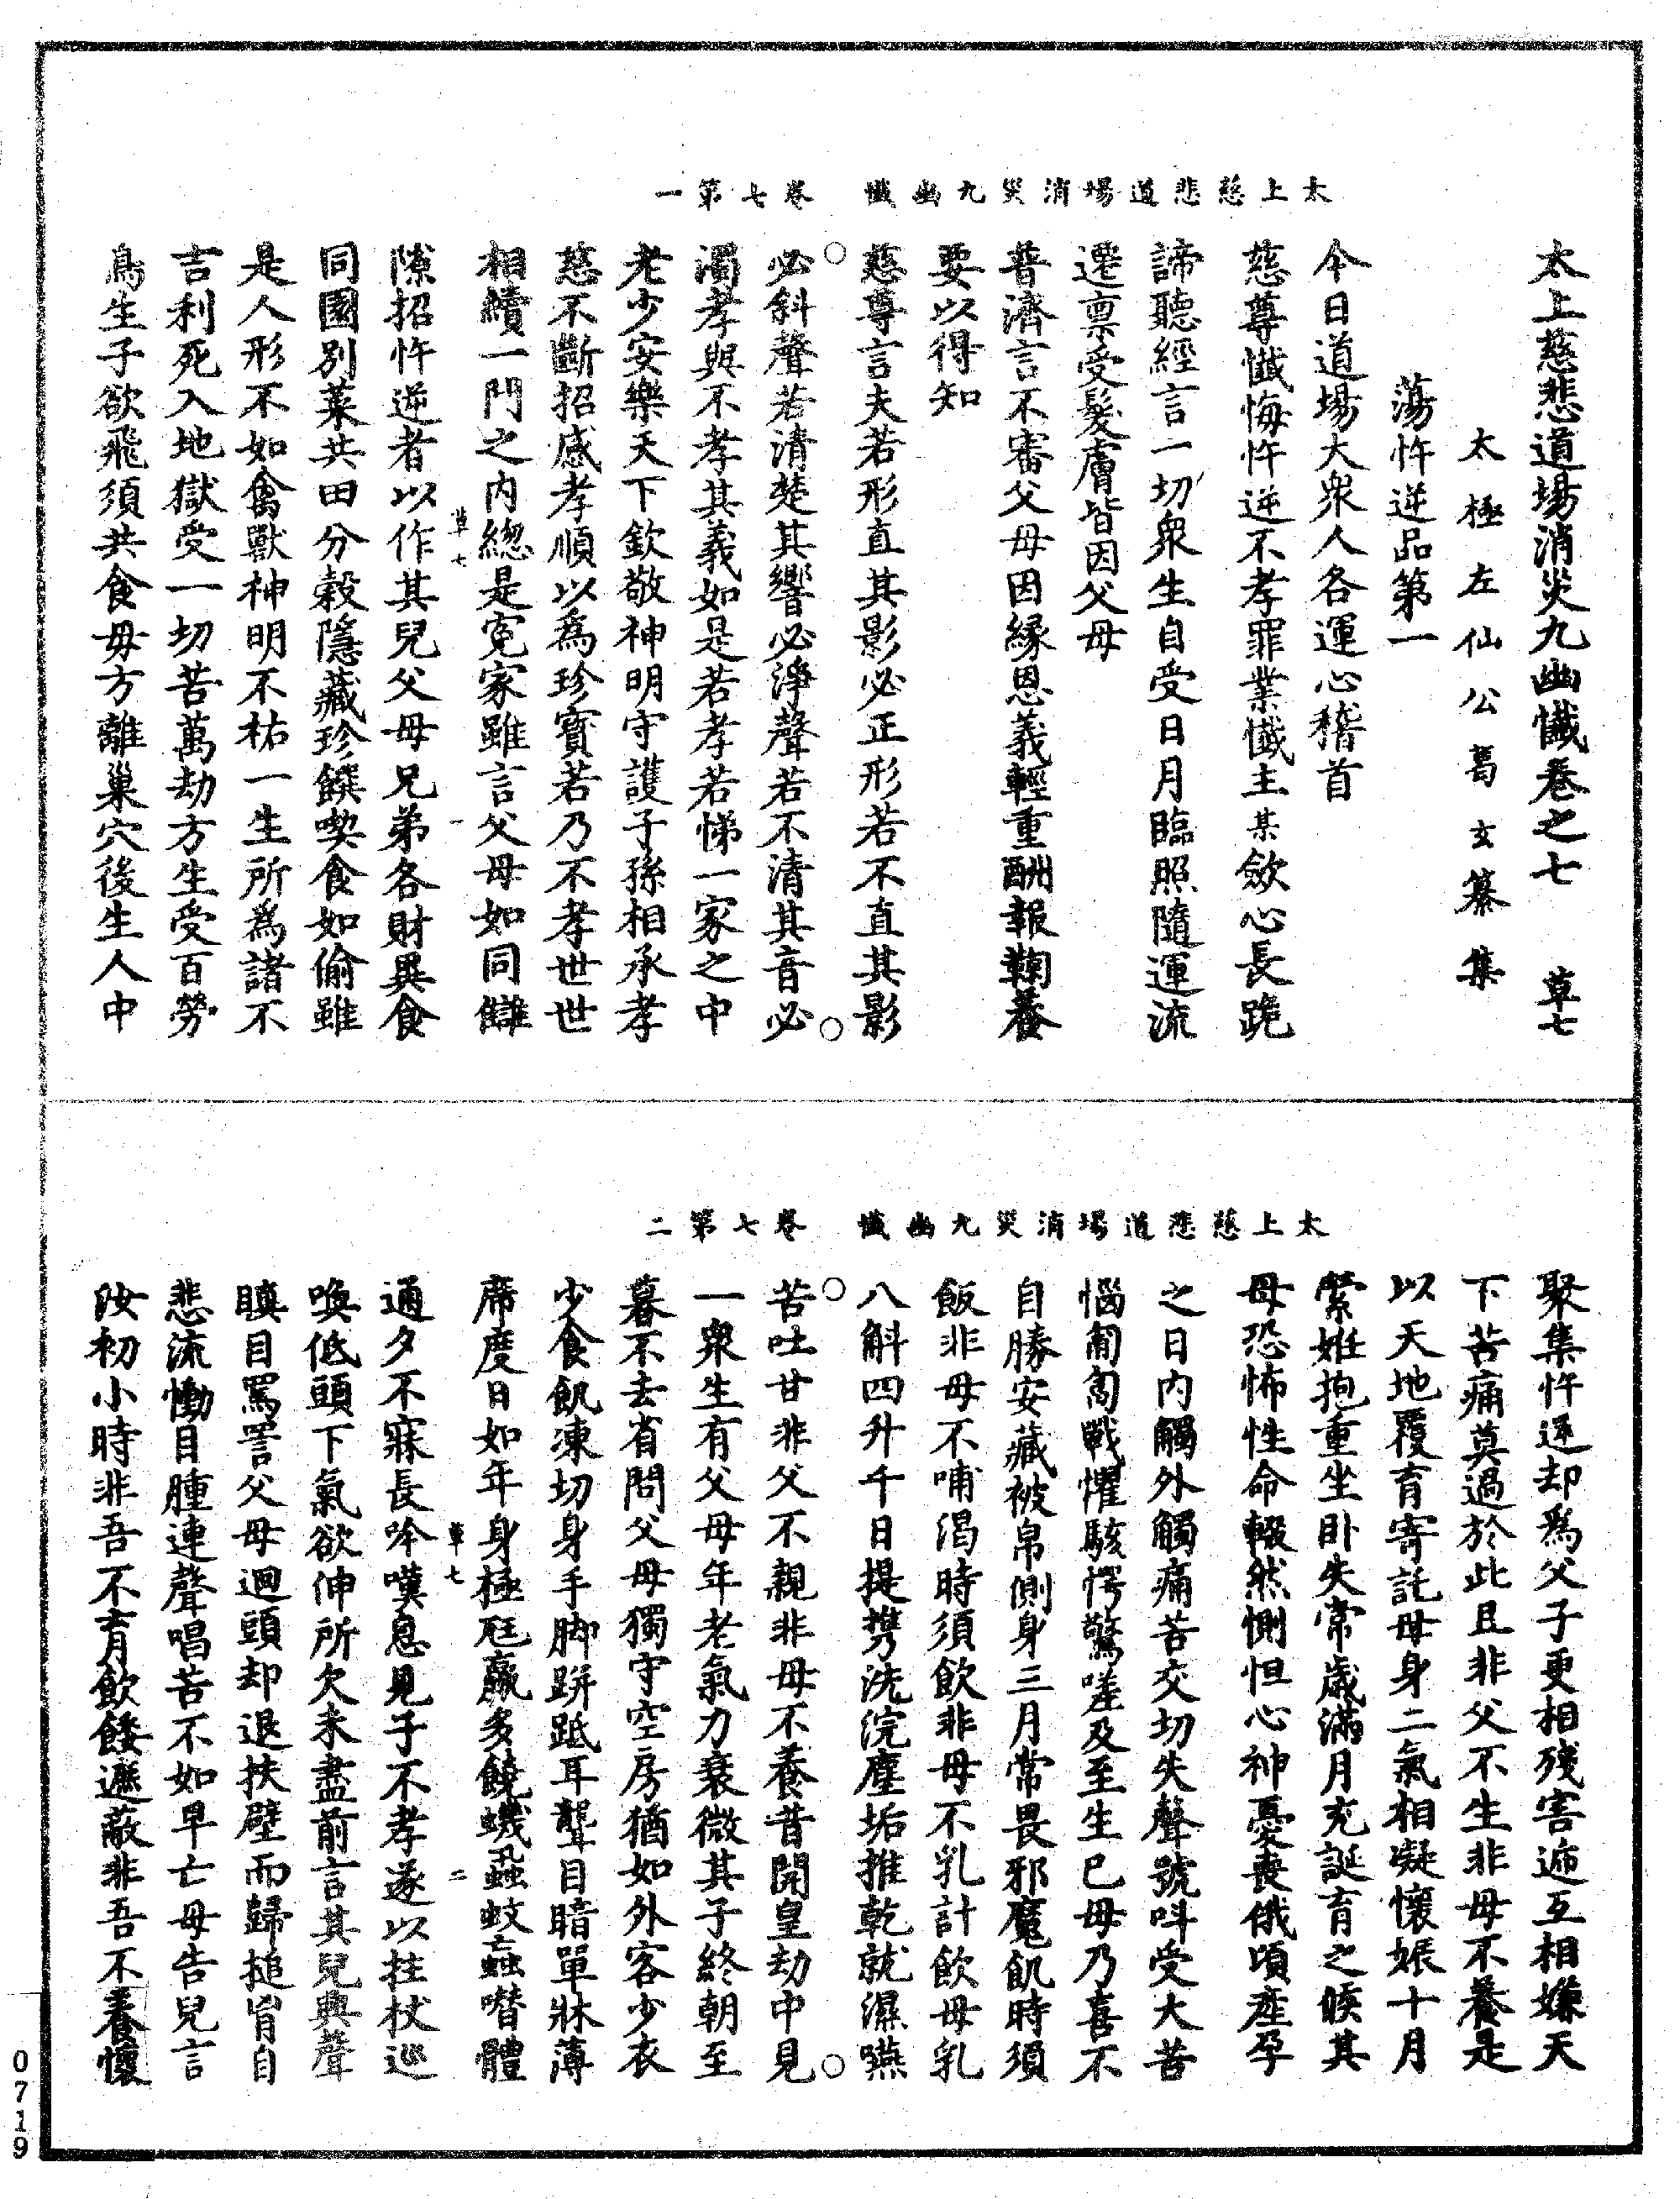 太上慈悲道場消災九幽懺　卷七第一
太上慈悲道場消災九幽懺卷之七　草七
太極左仙公葛玄纂集
蕩忤逆品第一
今日道場大衆人各運心稽首
慈尊懺悔忤逆不孝罪業懺主某歛心長跪
諦聽經言一切衆生自受日月臨照隨運流
遷禀受髮膚皆因父母
普濟言不審父母因緣恩義輕重酬報鞠養
要以得知
慈尊言夫若形直其影必正形若不直其影
必斜聲若清楚其響必淨聲若不清其音必
濁孝與不孝其義如是若孝若悌一家之中
老少安樂天下欽敬神明守護子孫相承孝
慈不斷招感孝順以爲珍寶若乃不孝世世
相續一門之内緫是寃家雖言父母如同讎
草七　一
隙招忤逆者以作其兒父母兄弟各財異食
同國別業共田分穀隱藏珍饌喫食如偷雖
是人形不如禽獸神明不祐一生所爲諸不
吉利死入地獄受一切苦萬劫方生受百勞
鳥生子欲飛須共食母方離巢穴後生人中
太上慈悲道場消災九幽懺　卷七第二
聚集忤逆却爲父子更相殘害遞互相嫌天
下苦痛莫過於此且非父不生非母不養是
以天地覆育寄託母身二氣相凝懷娠十月
縈姙抱重坐卧失常歲滿月充誕育之候其
母恐怖性命輟然惻怛心神憂喪俄頃産孕
之日内觸外觸痛苦交切失聲號呌受大苦
惱匍匐戰懼駭愕驚嗟及至生已母乃喜不
自勝安藏被帛側身三月常畏邪魔飢時須
飯非母不哺渴時須飲非母不乳計飲母乳
八斛四升千日提携洗浣塵垢推乾就濕嚥
苦吐甘非父不親非母不養昔開皇劫中見
一衆生有父母年老氣力衰微其子終朝至
暮不去省問父母獨守空房猶如外客少衣
少食飢凍切身手脚跰跐耳聾目暗單牀薄
席度日如年身極尫羸多饒蟣蝨蚊蝱噆體
草七　二
通夕不寐長吟嘆息見子不孝遂以拄杖巡
喚低頭下氣欲伸所欠未盡前言其兒興聲
瞋目罵詈父母迴頭却退挾壁而歸搥胷自
悲流慟目腫連聲唱苦不如早亡母告兒言
汝初小時非吾不育飲餧遮蔽非吾不養懷
0719